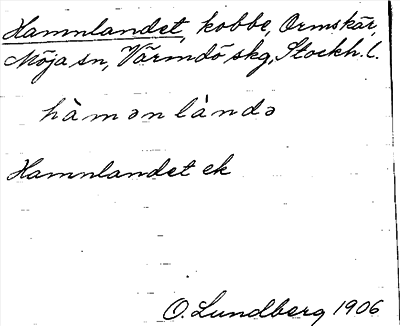 Hamnlandet, kobbe, Ormskär,
Möja sn, Värmdö skg, Stockh. l.
hàmənlàndə
Hamnlandet ek
O. Lundberg 1906